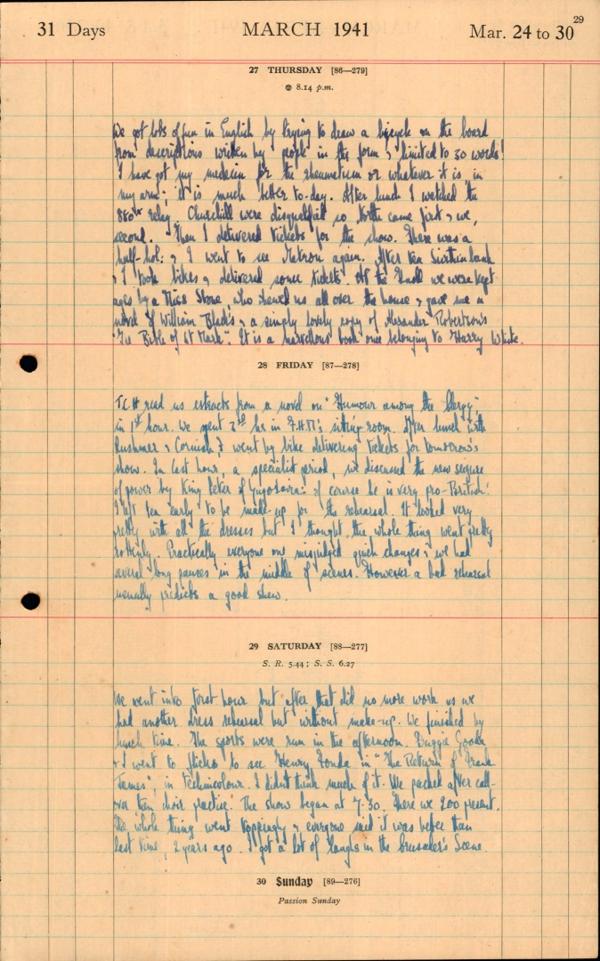 29
31 Days MARCH 1941 Mar. 24 to 30
27 THURSDAY [86—279]
8.14 p.m.
We got lots of fun in English by trying to draw a bicycle on the board
from descriptions written by people in the form, limited to 50 words!
I have got my medicine for the rheumatism or whatever it is in
my arm; it is much better to-day. After lunch I watched the
880x relay. Churchill were disqualified so North came first & we,
second. Then I delivered tickets for the show. There was a
half-hol: & I went to see Matron again. After tea
& I took bikes & delivered some tickets. At the Knoll we were kept
ages by a Miss Stone, who showed us all over the house & gave me a
novel of William Black's & a simply lovely copy of Alexander Robertson's
"The Bible of St Mark". It is a marvellous book once belonging to Harry White.
28 FRIDAY [87—278]
read us extracts from a novel on "Humour among the Clergy"
in 1st hour. We spent 2nd hr in sitting room. After lunch with
Rushmer & Cornish I went by bike delivering tickets for tomorrow's
show. In last hour, a specialist period, we discussed the new seizure
of power by King Peter of Yugoslavia: of course he is very pro-British!
I left tea early to be made-up for the rehearsal. It looked very
pretty with all the dresses but I thought the whole thing went pretty
rottenly. Practically everyone misjudged quick changes & we had
several long pauses in the middle of scenes. However a bad rehearsal
usually predicts a good show.
29 SATURDAY [88—277]
S. R. 5.44; S. S. 6.27
We went into first hour but after that did no more work as we
had another dress rehearsal but without make-up. We finished by
lunch time. The sports were run in the afternoon.
& I went to to see Henry Fonda in "The Return of Frank
James", in Technicolour. I didn't think much of it. We packed after call-
over then choir practice. The show began at 7.30. There we 200 present.
The whole thing went toppingly & everyone said it was better than
last time, 2 years ago. I got a lot of laughs in the Crusader's Scene.
30 Sunday [89—276]
Passion Sunday